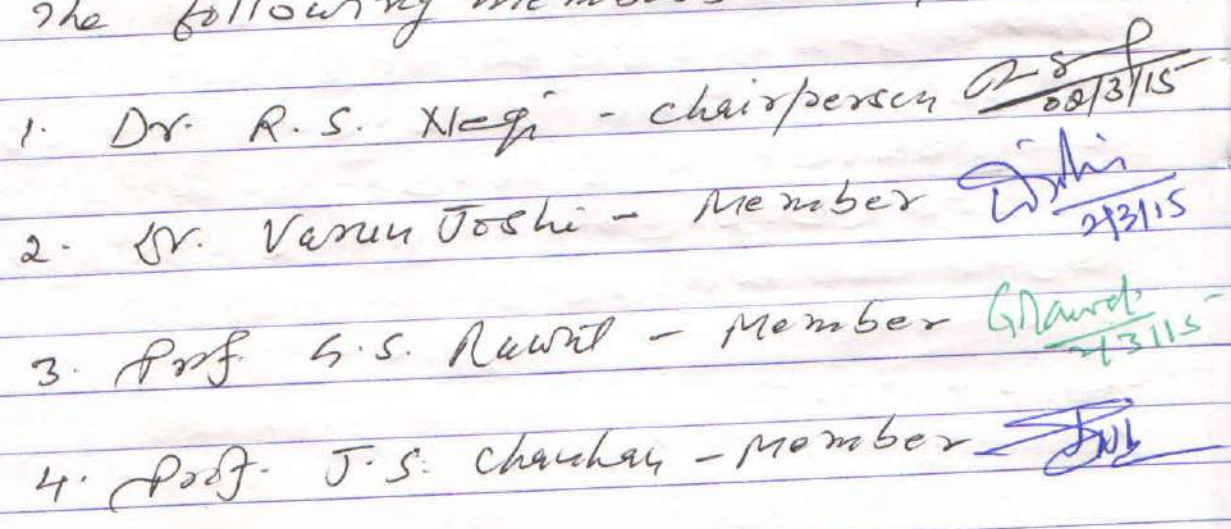 The following members
1. Dr. R. S. Negi - chairperson 02/3/15
2. Dr. Varun Joshi - Member 2/3/15
3. Prof. G. S. Rawat - Member GSRawat 2/3/15
4. Prof. J. S. Chauhan - Member